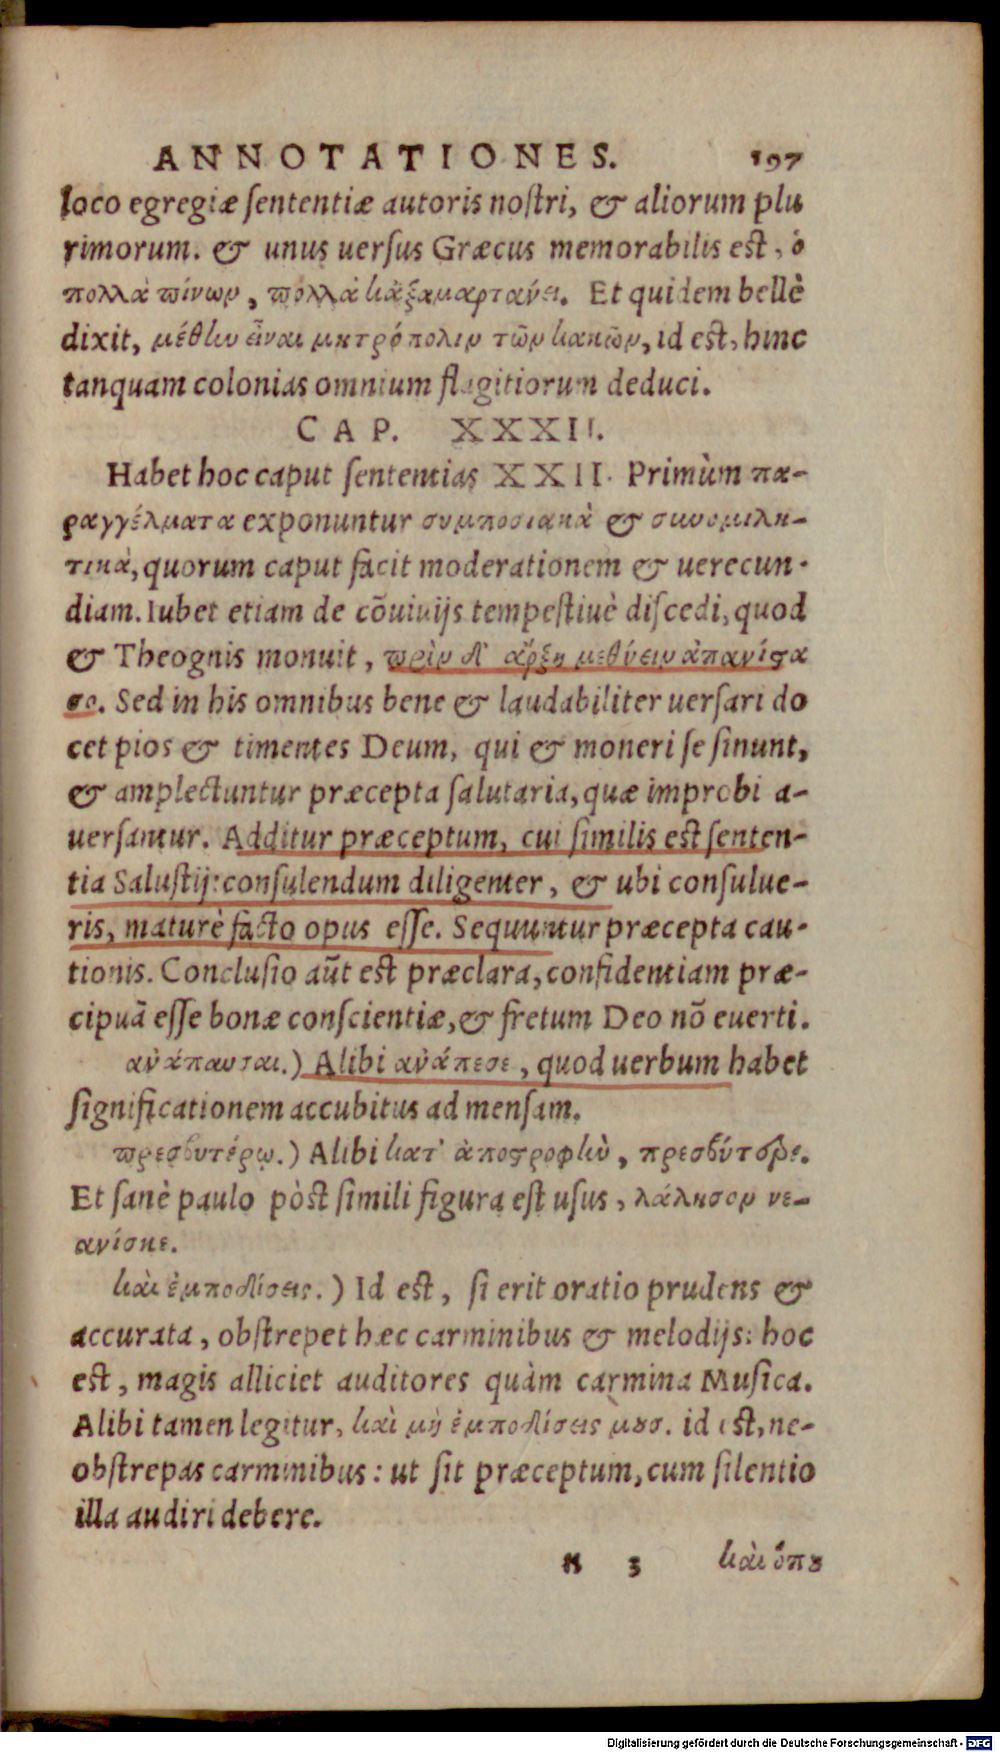 ANNOTATIONES. 197
loco egregiæ sententiæ autoris nostri, & aliorum plu
rimorum. & unus uersus Græcus memorabilis est, ὁ
πολλὰ πίνων, πολλὰ κἀξαμαρτάνει. Et quidem bellè
dixit, μέθην εἶναι μητρόπολιν τῶν κακῶν, id est, hinc
tanquam colonias omnium flagitiorum deduci.
CAP. XXXII.
Habet hoc caput sententias XXII. Primùm πα-
ραγγέλματα exponuntur συμποσιακὰ & συνομιλη-
τικὰ, quorum caput facit moderationem & uerecun-
diam. Iubet etiam de cõuiuijs tempestiuè discedi, quod
& Theognis monuit, πρὶν δ' ἄρξῃ μεθύειν ἀπανίστα
σο. Sed in his omnibus bene & laudabiliter uersari do
cet pios & timentes Deum, qui & moneri se sinunt,
& amplectuntur præcepta salutaria, quæ improbi a-
uersantur. Additur præceptum, cui similis est senten-
tia Salustij: consulendum diligenter, & ubi consulue-
ris, maturè facto opus esse. Sequuntur præcepta cau-
tionis. Conclusio aũt est præclara, confidentiam præ-
cipuã esse bonæ conscientiæ, & fretum Deo nõ euerti.
ἀνάπαυσαι.) Alibi ἀνάπεσε, quod uerbum habet
significationem accubitus ad mensam.
πρεσβυτέρῳ.) Alibi κατ' ἀποστροφὴν, πρεσβύτερε.
Et sanè paulo pòst simili figura est usus, λάλησον νε-
ανίσκε.
καὶ ἐμποδίσεις.) Id est, si erit oratio prudens &
accurata, obstrepet hæc carminibus & melodijs: hoc
est, magis alliciet auditores quàm carmina Musica.
Alibi tamen legitur, καὶ μὴ ἐμποδίσεις μουσ. id est, ne-
obstrepas carminibus: ut sit præceptum, cum silentio
illa audiri debere.
N 3 καὶ ὅπου
Digitalisierung gefördert durch die Deutsche Forschungsgemeinschaft - DFG